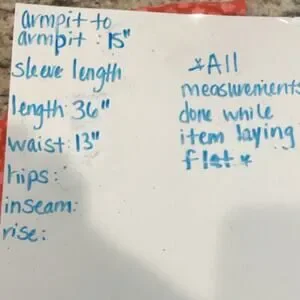 armpit to
armpit: 15"
sleeve length
length: 36"
waist: 13"
hips:
inseam:
rise:
*All
measurements
done while
item laying
flat*